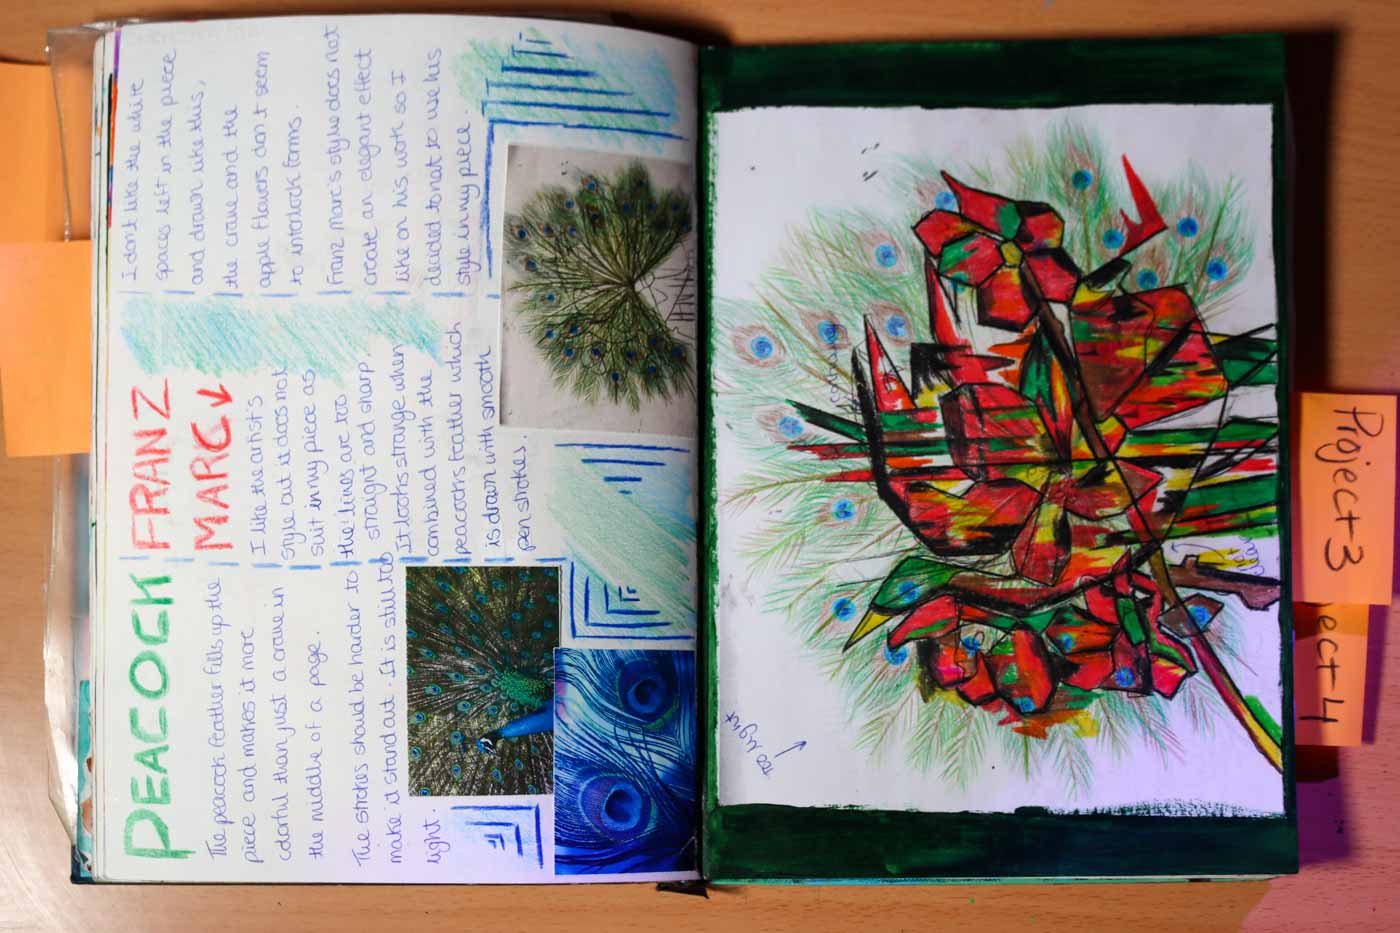 PEACOCK
The peacock feather fills up the
piece and makes it more
colorful than just a crane in
the middle of a page.
The strokes should be harder to
make it stand out. It is still too
light.
FRANZ
MARC
I like the artist's
style but it does not
suit in my piece as
the lines are too
straight and sharp.
It looks strange when
combined with the
peacocks feather which
is drawn with smooth
pen strokes.
I don't like the white
spaces left in the piece
and drawn like this,
the crane and the
apple flavors don't seem
to interlock forms.
Franz Marc's style does not
create an elegant effect
like on his work so I
decided to not to use his
style in my piece.
Too light
Project 3
ject 4